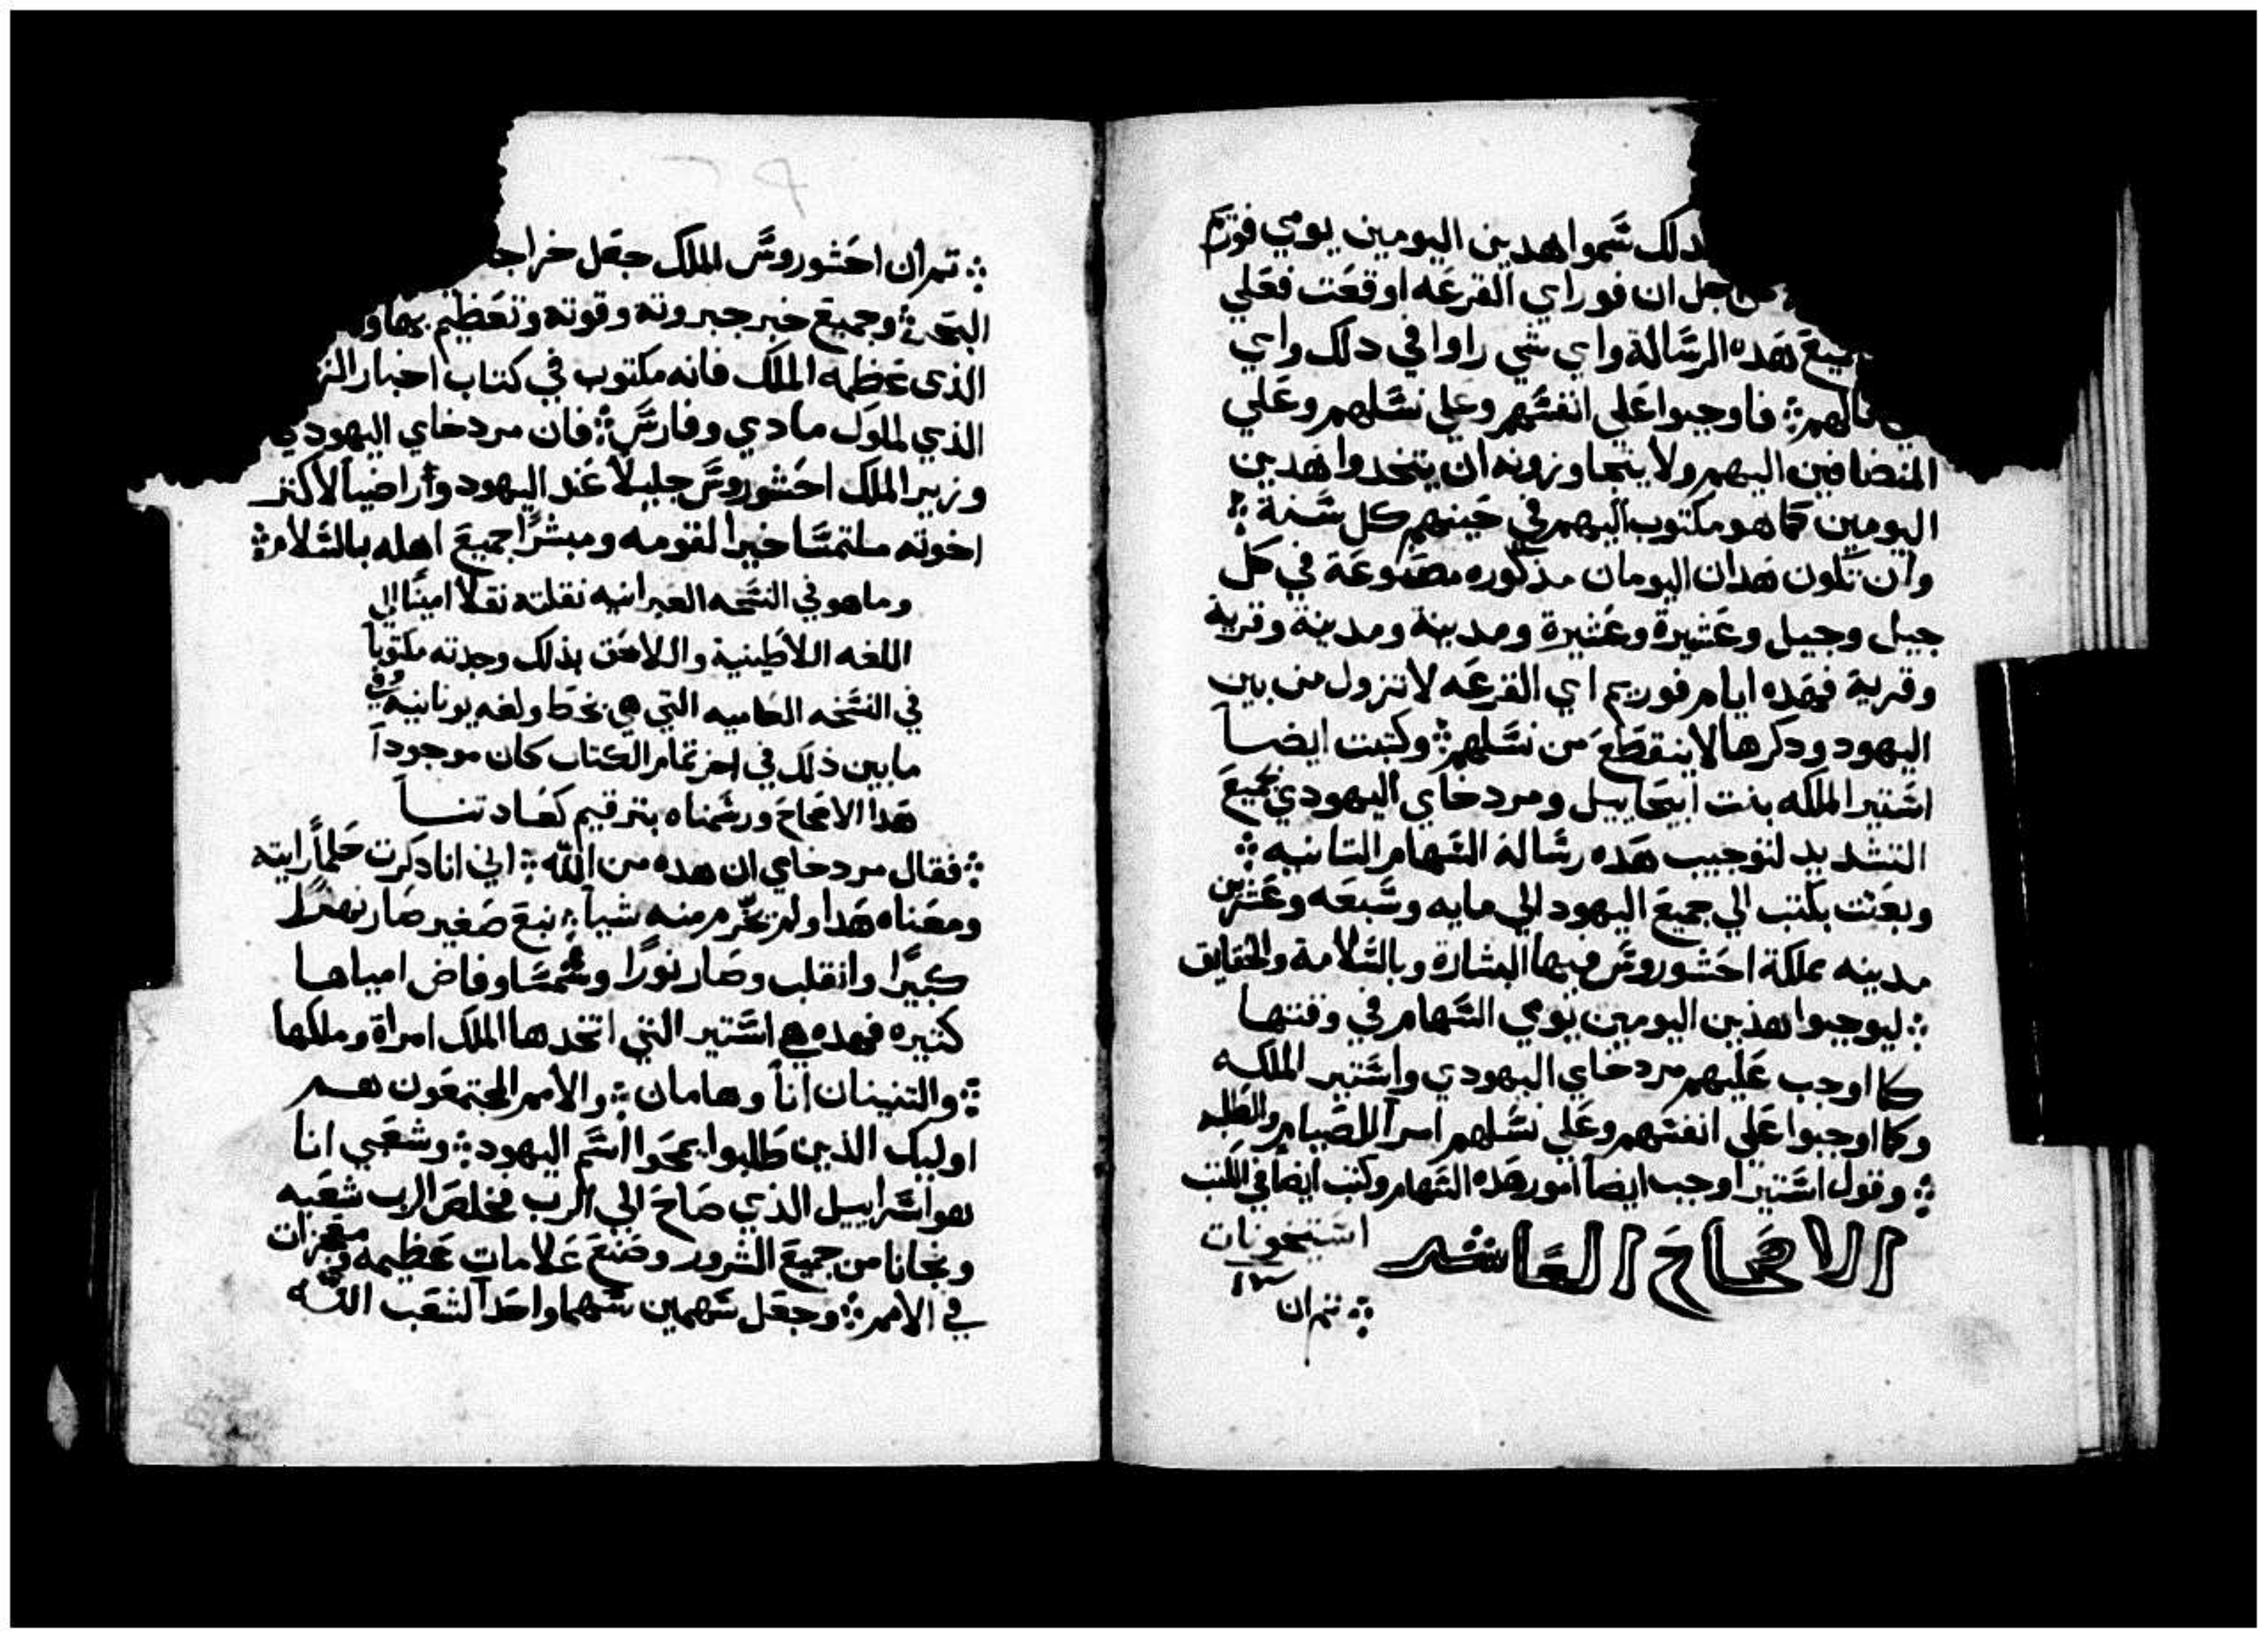 دلك سموا هدين اليومين يومي فوريم
جل ان فور اي القرعه اوقعت فعلي
هده الرسالة واي شي راوا في دلك واي
فاوجبوا علي انفسهم وعلي نسلهم وعلي
المنضافين اليهم ولا يتجاوزونه ان يتخدوا هدين
اليومين كما هو مكتوب اليهم في حينهم كل سنة ܀
وان تكون هدان اليومان مذكوره مصنوعة في كل
جيل وجيل وعشيرة وعشيرة ومدينة ومدينة وقرية
وقرية فهده ايام فوريم اي القرعه لا تزول من بين
اليهود ودكرها لا ينقطع من نسلهم ܀ وكتبت ايضاً
استير الملكه بنت ابيحاييل ومردخاي اليهودي بجميع
التشديد لتوجيب هده رسالة السهام التانيه ܀
وبعثت بكتب الي جميع اليهود الي مايه وسبعه وعشرين
مدينه مملكة احشوروش فيها البشارة وبالسلامة والحقايق
܀ ليوجبوا هذين اليومين يومي السهام في وقتها
كما اوجب عليهم مردخاي اليهودي واستير الملكه
وكما اوجبوا علي انفسهم وعلي نسلهم امراً للصيام والطلبه
܀ وقول استير اوجب ايضاً امور هده السهام وكتب ايضاً في الكتب
الاصحاح العاشر استيخونات
١٣
܀ ثم ان
܀ ثم ان احشوروش الملك جعل خراجا
البحر ܀ وجميع خبر جبروته وقوته وتعظيم بهاو
الذي عظمه الملك فانه مكتوب في كتاب اخبار
الذي لملوك مادي وفارس ܀ فان مردخاي اليهودي
وزير الملك احشوروش جليلاً عند اليهود وأراضياً لاكثر
اخوته ملتمسا خيرا لقومه ومبشرًا جميع اهله بالسلام ܀
وما هو في النسخه العبرانيه نقلته نقلا امينًا الي
اللغه اللاطينية واللاحق بذلك وجدته مكتوباً
في النسخه العاميه التي هي بخط ولغه يونانية وفي
ما بين ذلك في اخر تمام الكتاب كان موجوداً
هدا الاصحاح ورسمناه بترقيم كعادتنا
܀ فقال مردخاي ان هده من الله ܀ اني انا دكرت حلماً رايته
ومعناه هدا ولم يخرم منه شياً ܀ نبع صغير صار نهرًا
كبيرًا وانقلب وصار نورًا وشمسًا وفاض امياها
كثيره فهده هي استير التي اتخدها الملك امراة وملكها
܀ والتنينان اناً وهامان ܀ والامم المجتمعون هم
اوليك الذين طلبوا يمحوا اسم اليهود ܀ وشعبي انا
هو اسراييل الذي صاح الي الرب فخلص الرب شعبه
ونجانا من جميع الشرور وصنع علامات عظيمه ومعجزات
في الامم ܀ وجعل سهمين سهما واحداً لشعب الله